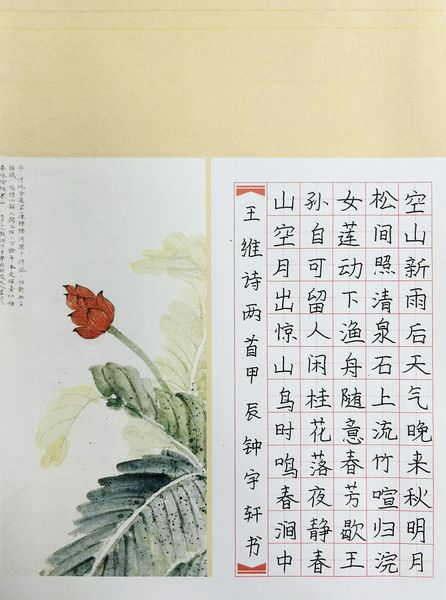 空山新雨后天气晚来秋明月
松间照清泉石上流竹喧归浣
女莲动下渔舟随意春芳歇王
孙自可留人闲桂花落夜静春
山空月出惊山鸟时鸣春涧中
王维诗两首甲辰钟宇轩书